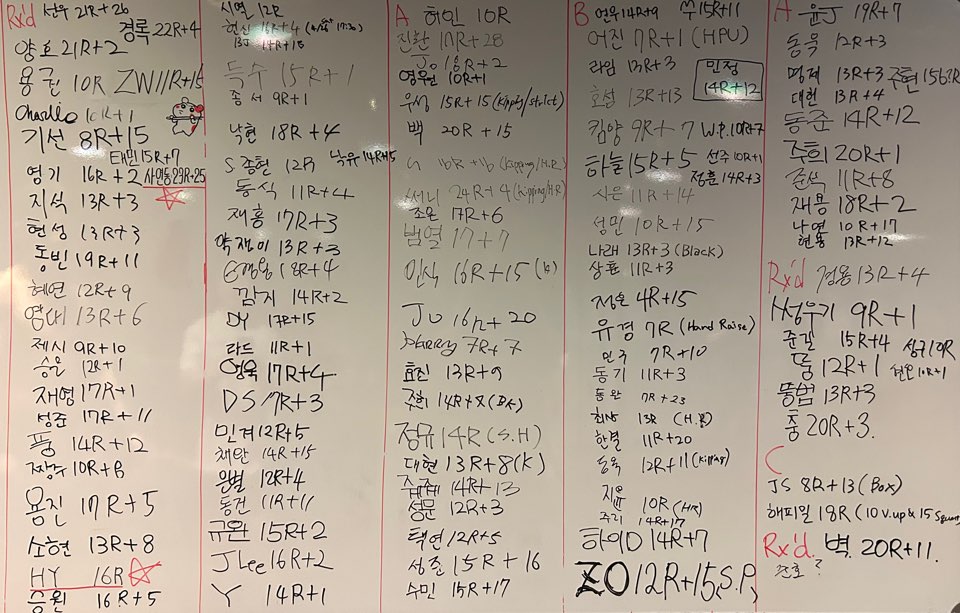 Rx'd 선우 21R+26
경록 22R+4
양호 21R+2
용권 10R ZW 11R+15
Charlie 10R+1
기선 8R+15
태민 15R+7
영기 16R+2 사인동 29R+25
지식 13R+3
현성 13R+3
동빈 19R+11
혜연 12R+9
영대 13R+6
제시 9R+10
승은 12R+1
재영 17R+1
성준 17R+11
풍 14R+12
짱구 10R+8
용진 17R+5
소현 13R+8
HY 16R
승원 16R+5
시연 12R
현신 16R+4
BJ 14R+15
득수 15R+1
종서 9R+1
낙현 18R+4
S. 종현 12R 낙유 14R+5
동식 11R+4
재홍 17R+3
약쟁이 13R+3
18R+4
깜지 14R+2
DY 17R+15
라드 11R+1
영욱 17R+4
DS 17R+3
민계 12R+5
채안 14R+15
원별 12R+4
동건 11R+11
규완 15R+2
J Lee 16R+2
Y 14R+1
A 허민 10R
진환 17R+28
Jo 18R+2
영원 10R+1
우성 15R+15 (Kipping/strict)
백 20R+15
16R+16 (Kipping/H.R)
써니 24R+9 (Kipping/H.R)
조은 17R+6
범열 17+7
인식 16R+15
JU 16R+20
Harry 7R+7
효진 13R+9
주희 14R+8 (BA)
정규 14R (S.H)
대현 13R+8 (K)
14R+13
성문 12R+3
택연 12R+5
성준 15R+16
수민 15R+17
B 연우 14R+9 쑤 15R+11
어진 7R+1 (HPU)
라임 13R+3 민정
호섭 13R+13 14R+12
킴양 9R+7 W.P. 10R+7
하늘 15R+5 선주 10R+1
정훈 14R+3
시은 11R+14
성민 10R+15
나래 13R+3 (Black)
상표 11R+3
정은 4R+15
유경 7R (Hand Raise)
민주 7R+10
동기 11R+3
동완 7R+23
희상 13R (H.R)
한결 11R+20
동욱 12R+11 (Kipping)
지윤 10R (HR)
주리 14R+17
하이D 14R+7
ZO 12R+15, S.P,
A 윤J 19R+7
동욱 12R+3
명제 13R+3 주현 15R
대헌 13R+4
동준 14R+12
주희 20R+1
준석 11R+8
재용 18R+2
나연 10R+17
현웅 13R+12
Rx'd 경용 13R+4
썽우기 9R+1
준길 15R+4 성규 19R
뚱 12R+1 현은 10R+1
뚱범 13R+3
충 20R+3.
C
JS 8R+13 (Box)
해피일 18R (10 V.up & 15 Squat)
Rx'd. 벽 20R+11.
건호?